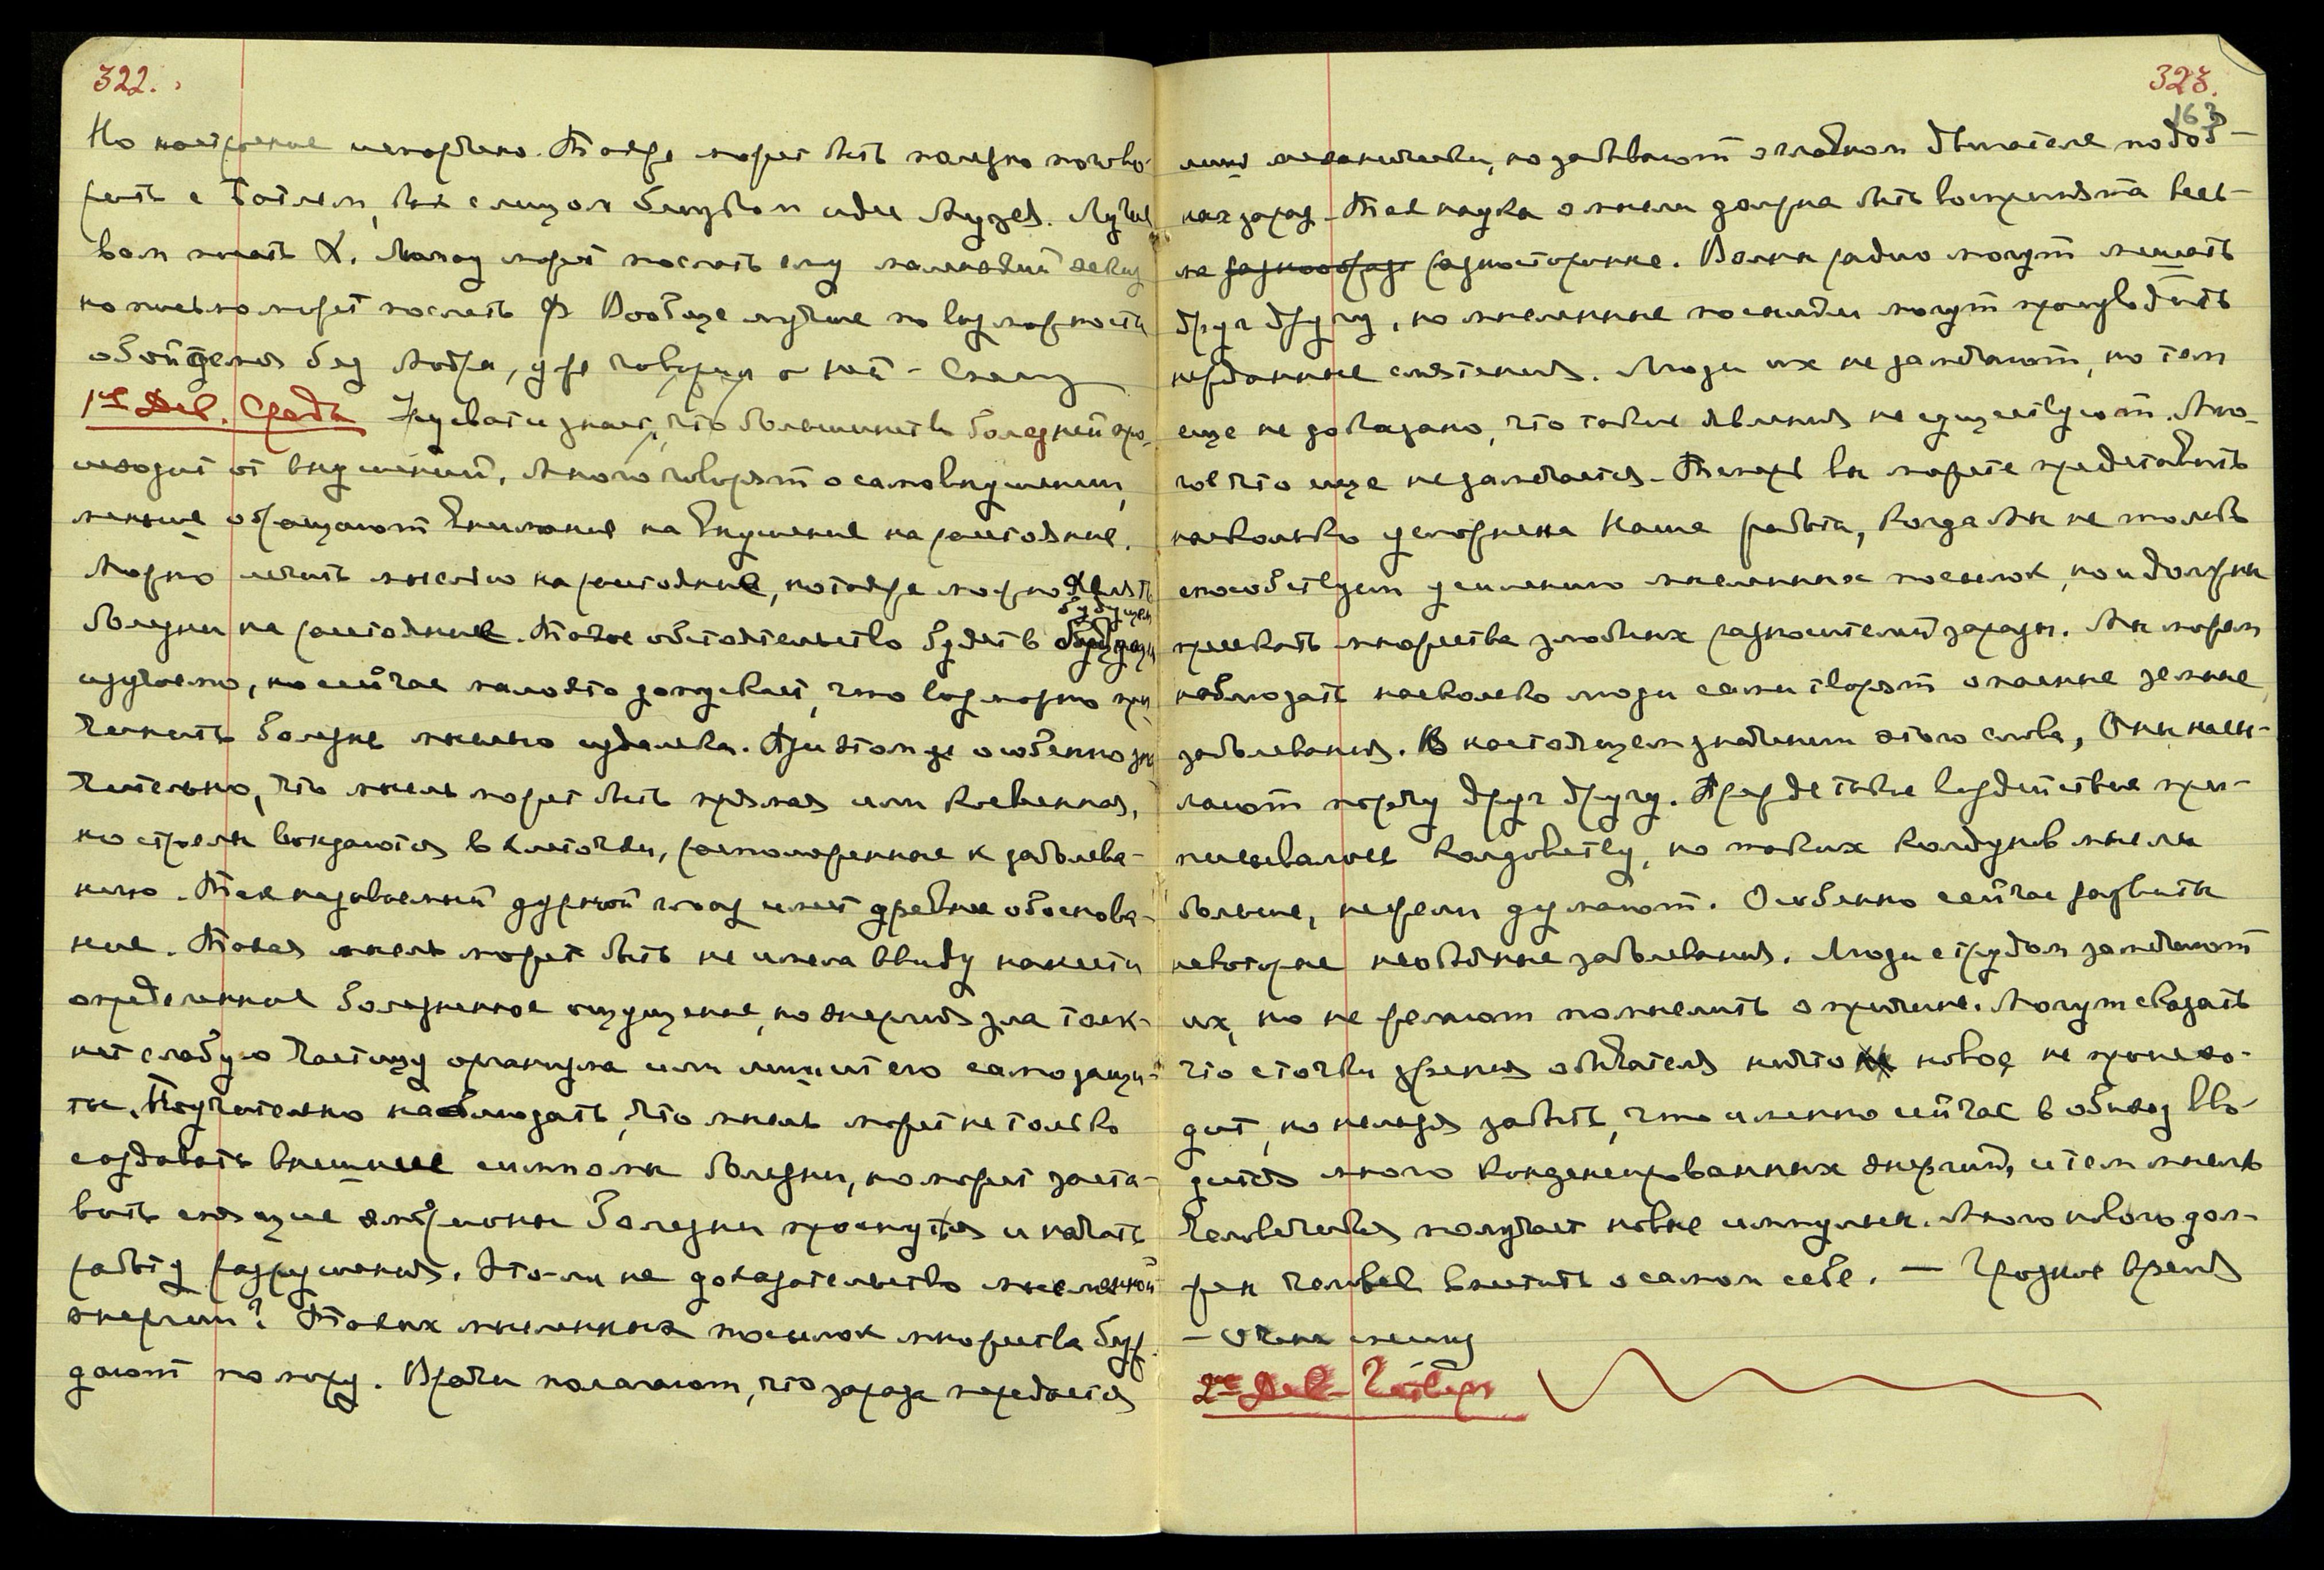 322.
Но настроение испорчено. Также может быть полезно погово-
рить с , как с лицом близким идеи Музея. Лучше
вам писать Х. может послать ему маленький эскиз
но письмо может послать Ф Вообще лучше по возможности
обойдемся без , уже говорил о ней - Скажу
1ое Дек. Среда Человек знает, что большинство болезней про-
исходит от внушений, много говорят о самовнушении,
меньше обращают внимание на внушение на расстояние.
Можно лечить мыслью на расстояние, но также можно делать
будущем
болезни на расстояние. Такое обстоятельство будет в
изучаемо, но сейчас мало кто допускает, что возможно при-
чинить болезнь мыслью издалека. При этом же особенно зна-
чительно, что мысль может быть прямая или косвенная,
но стрелы вонзаются в клеточки, расположенные к заболева-
нию. Так называемый дурной глаз имеет древнее обоснова-
ние. Такая мысль может быть не имела ввиду нанести
определенное болезненное ощущение, но энергия зла толк-
нет слабую частицу организма или лишит его самозащи-
ты. Поучительно наблюдать, что мысль может не только
создавать внешние симптомы болезни, но может заста-
вить спящие эмбрионы болезни проснуться и начать
работу разрушения. Это-ли не доказательство мысленной
энергии? Таких мысленных посылок множества блуж-
дают по миру. Врачи полагают, что зараза передается
323.
163
лишь механически, но забывают о главном двигателе подоб-
ных зараз. Так наука о мысли должна быть воспринята весь-
ма разнообразн разносторонне. Волны радио могут мешать
друг другу, но мысленные посылки могут производить
нежданные смятения. Люди их не замечают, но тем
еще не доказано, что такие явления не существуют. Мно-
гое что еще не замечается. Теперь вы можете представить
насколько усложнена Наша работа, когда Мы не только
способствуем усилению мысленных посылок, но и должны
пресекать множества злобных разносителей заразы. Мы можем
наблюдать насколько люди сами творят опасные земные
заболевания. В настоящем значении этого слова, Они насы-
лают порчу друг другу. Прежде такие воздействия при-
писывалось колдовству, но таких колдунов мысли
больше, нежели думают. Особенно сейчас развиты
некоторые необычные заболевания. Люди с трудом замечают
их, но не желают помыслить о причине. Могут сказать
что с точки зрения обывателя ничто новое не происхо-
дит, но нельзя забыть, что именно сейчас в обиход вво-
дится много конденсированных энергий, и тем мысль
человеческая получает новые импульсы. Много нового дол-
жен человек вместить о самом себе. — Грозное время
— Очень
2ое Дек. Четверг